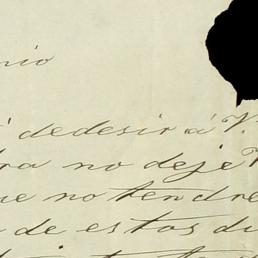 nio
i dedesir á V.
ra no deje
ue no tendre
de estos di